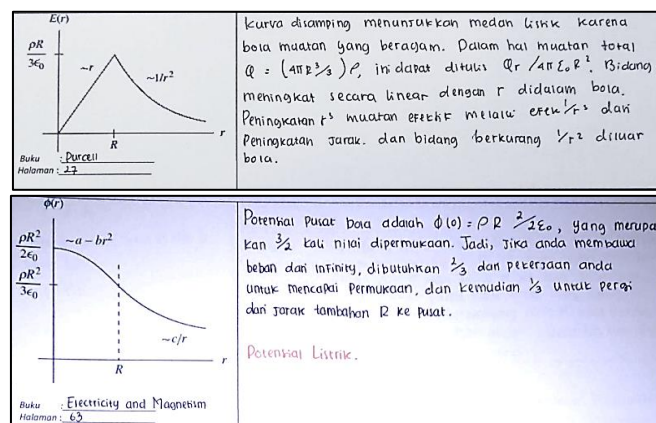 E(r)
ρR
3ϵ₀
~r
~1/r²
r
R
Buku : Purcell
Halaman : 27
Kurva disamping menunjukkan medan listrik karena
bola muatan yang beragam. Dalam hal muatan total
Q = (4πR³/3) ρ, ini dapat ditulis Qr /4π Σ₀ R². Bidang
meningkat secara linear dengan r didalam bola.
Peningkatan r³ muatan efektif melalui efek 1/r² dari
Peningkatan Jarak. dan bidang berkurang 1/r² diluar
bola.
ϕ(r)
ρR²
2ϵ₀
~a − br²
ρR²
3ϵ₀
~c/r
r
R
Buku : Electricity and Magnetism
Halaman : 63
Potensial Pusat bola adalah ϕ(0) = ρ R ²/2ε₀, yang merupa
kan 3/2 kali nilai dipermukaan. Jadi, Jika anda membawa
beban dari infinity, dibutuhkan 2/3 dari pekerjaan anda
untuk mencapai Permukaan, dan kemudian 1/3 untuk pergi
dari Jarak tambahan R ke pusat.
Potensial Listrik.